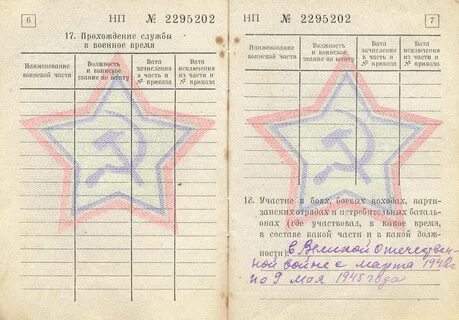 6
НП № 2295202
17. Прохождение службы
в военное время
Наименование
воинской части
Должность
и воинское
звание по штату
Дата
зачисления
в часть и
№ приказа
Дата
исключения
из части и
№ приказа
НП № 2295202
7
Наименование
воинской части
Должность
и воинское
звание по штату
Дата
зачисления
в часть и
№ приказа
Дата
исключения
из части и
№ приказа
18. Участие в боях, боевых походах, парти-
занских отрядах и истребительных баталь-
онах (где участвовал, в какое время,
в составе какой части и в какой долж-
ности): в Великой Отечествен-
ной войне с марта 1942г
по 9 мая 1945 года